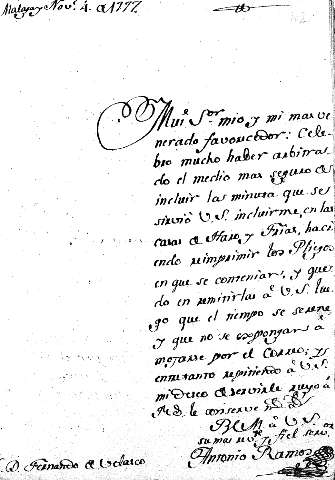 Malaga y Nov.e 4. de 1777.
Mui Sor. mio, y mi mas ve
nerado favorecedor: Cele
bro mucho haber arbitra
do el medio mas seguro de
incluir las minutas que se
sirvió V.S. incluirme, en las
casas de Haro, y Frias, haci
endo reimprimir los Pliegos
en que se contenian, y que
do en remitirlas à V.S. lue
go que el tiempo se serene
y que no se expongan à
mojarse por el Correo; y
entretanto repitiendo à V.S.
mi deseo de servirle ruego à
N.S. le conserve
B L M à V.S.
su mas y fiel serv.
Antonio Ramos
D. Fernando de Velasco